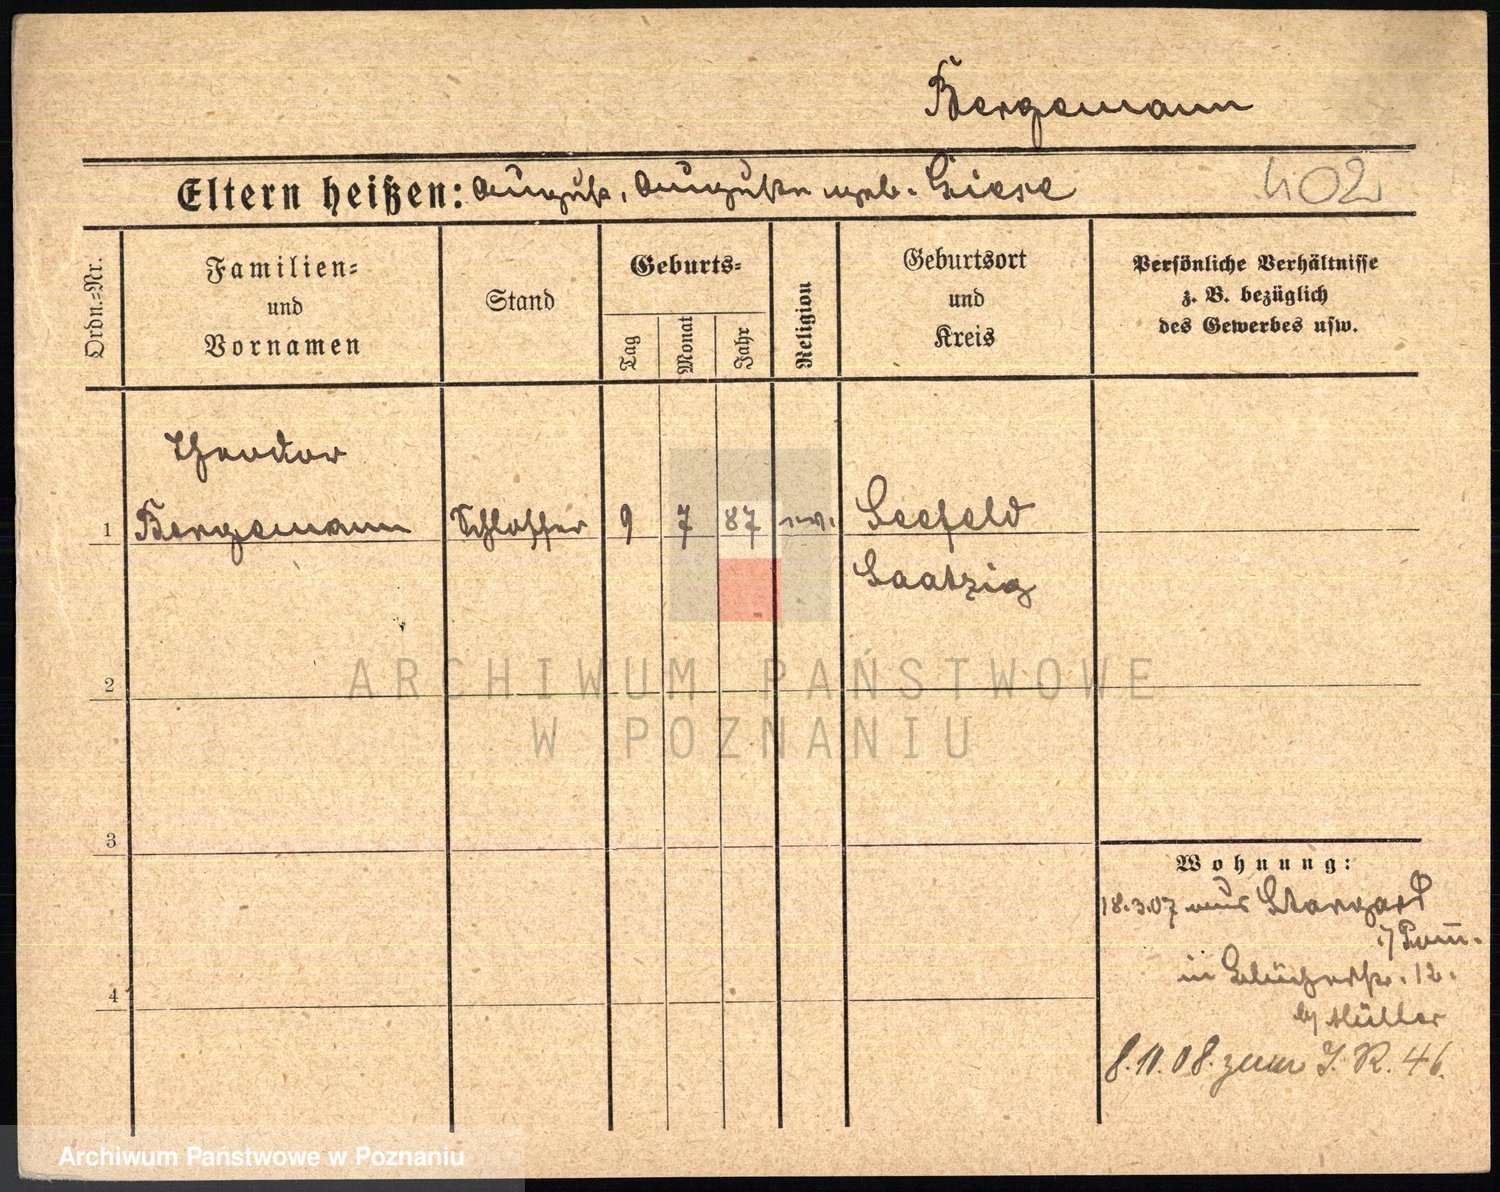 Bergemann
Eltern heißen: August, Auguste geb. Giese
402
Ordn.=Nr.
Familien= und Vornamen
Stand
Geburts=
Tag
Monat
Jahr
Religion
Geburtsort und Kreis
Persönliche Verhältnisse
z. B. bezüglich
des Gewerbes usw.
Theodor
1 Bergemann Schlosser 9 7 87 ev. Seefeld
Saatzig
2
3
4
Wohnung:
18.3.07 aus Stargard
i/Pom.
in Blücherstr. 12.
b/ Müller
8.11.08. zum I. R. 46.
ARCHIWUM PAŃSTWOWE
W POZNANIU
Archiwum Państwowe w Poznaniu